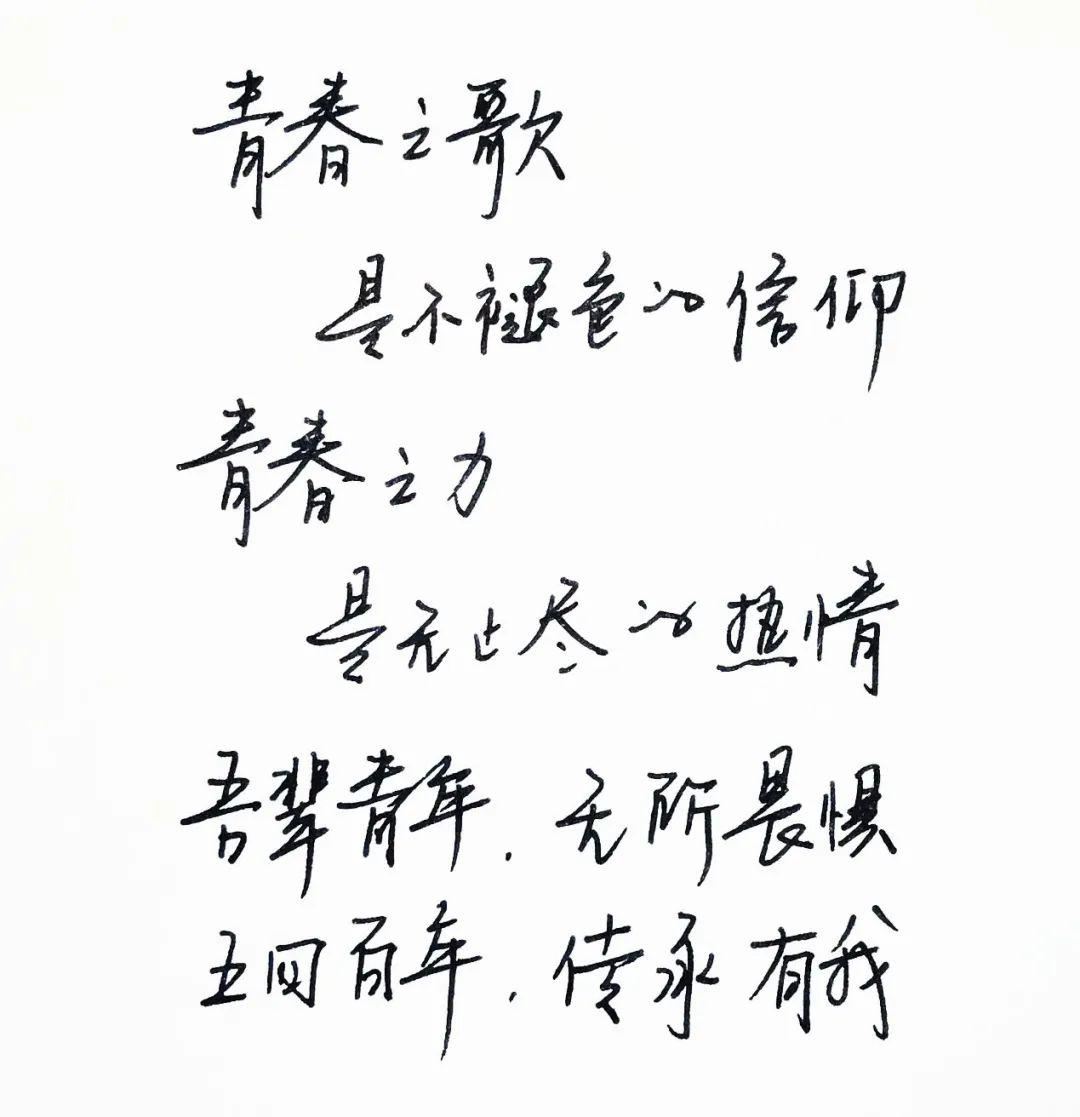 青春之歌
是不褪色的信仰
青春之力
是无止尽的热情
吾辈青年,无所畏惧
五四百年,传承有我